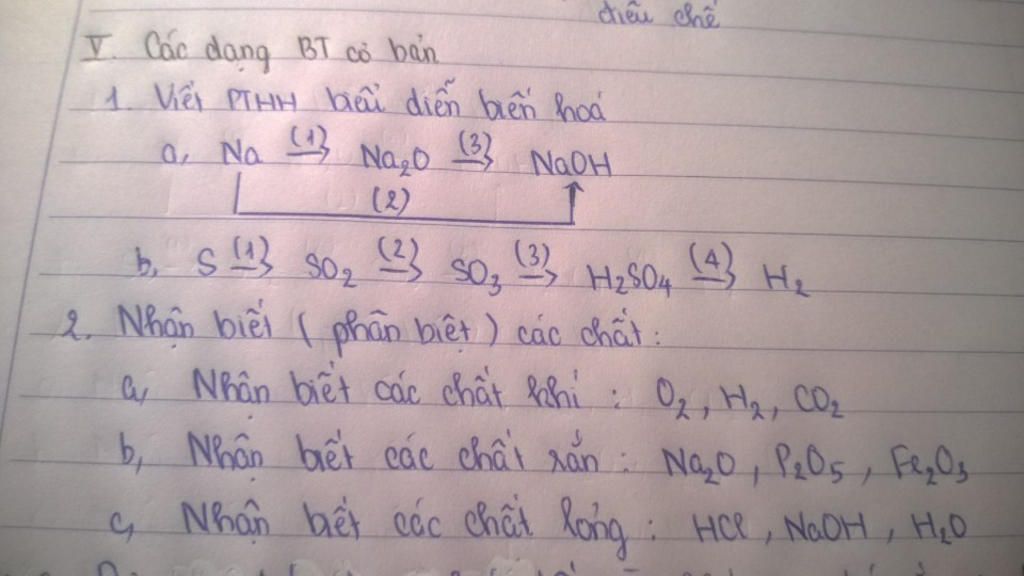 điều chế
V. Các dạng BT cơ bản
1. Viết PTHH biểu diễn biến hoá
a, Na (1)→ Na₂O (3)→ NaOH
(2)
b, S (1)→ SO₂ (2)→ SO₃ (3)→ H₂SO₄ (4)→ H₂
2. Nhận biết (phân biệt) các chất:
a, Nhận biết các chất khí : O₂, H₂, CO₂
b, Nhận biết các chất rắn : Na₂O, P₂O₅, Fe₂O₃
c, Nhận biết các chất lỏng : HCl, NaOH, H₂O